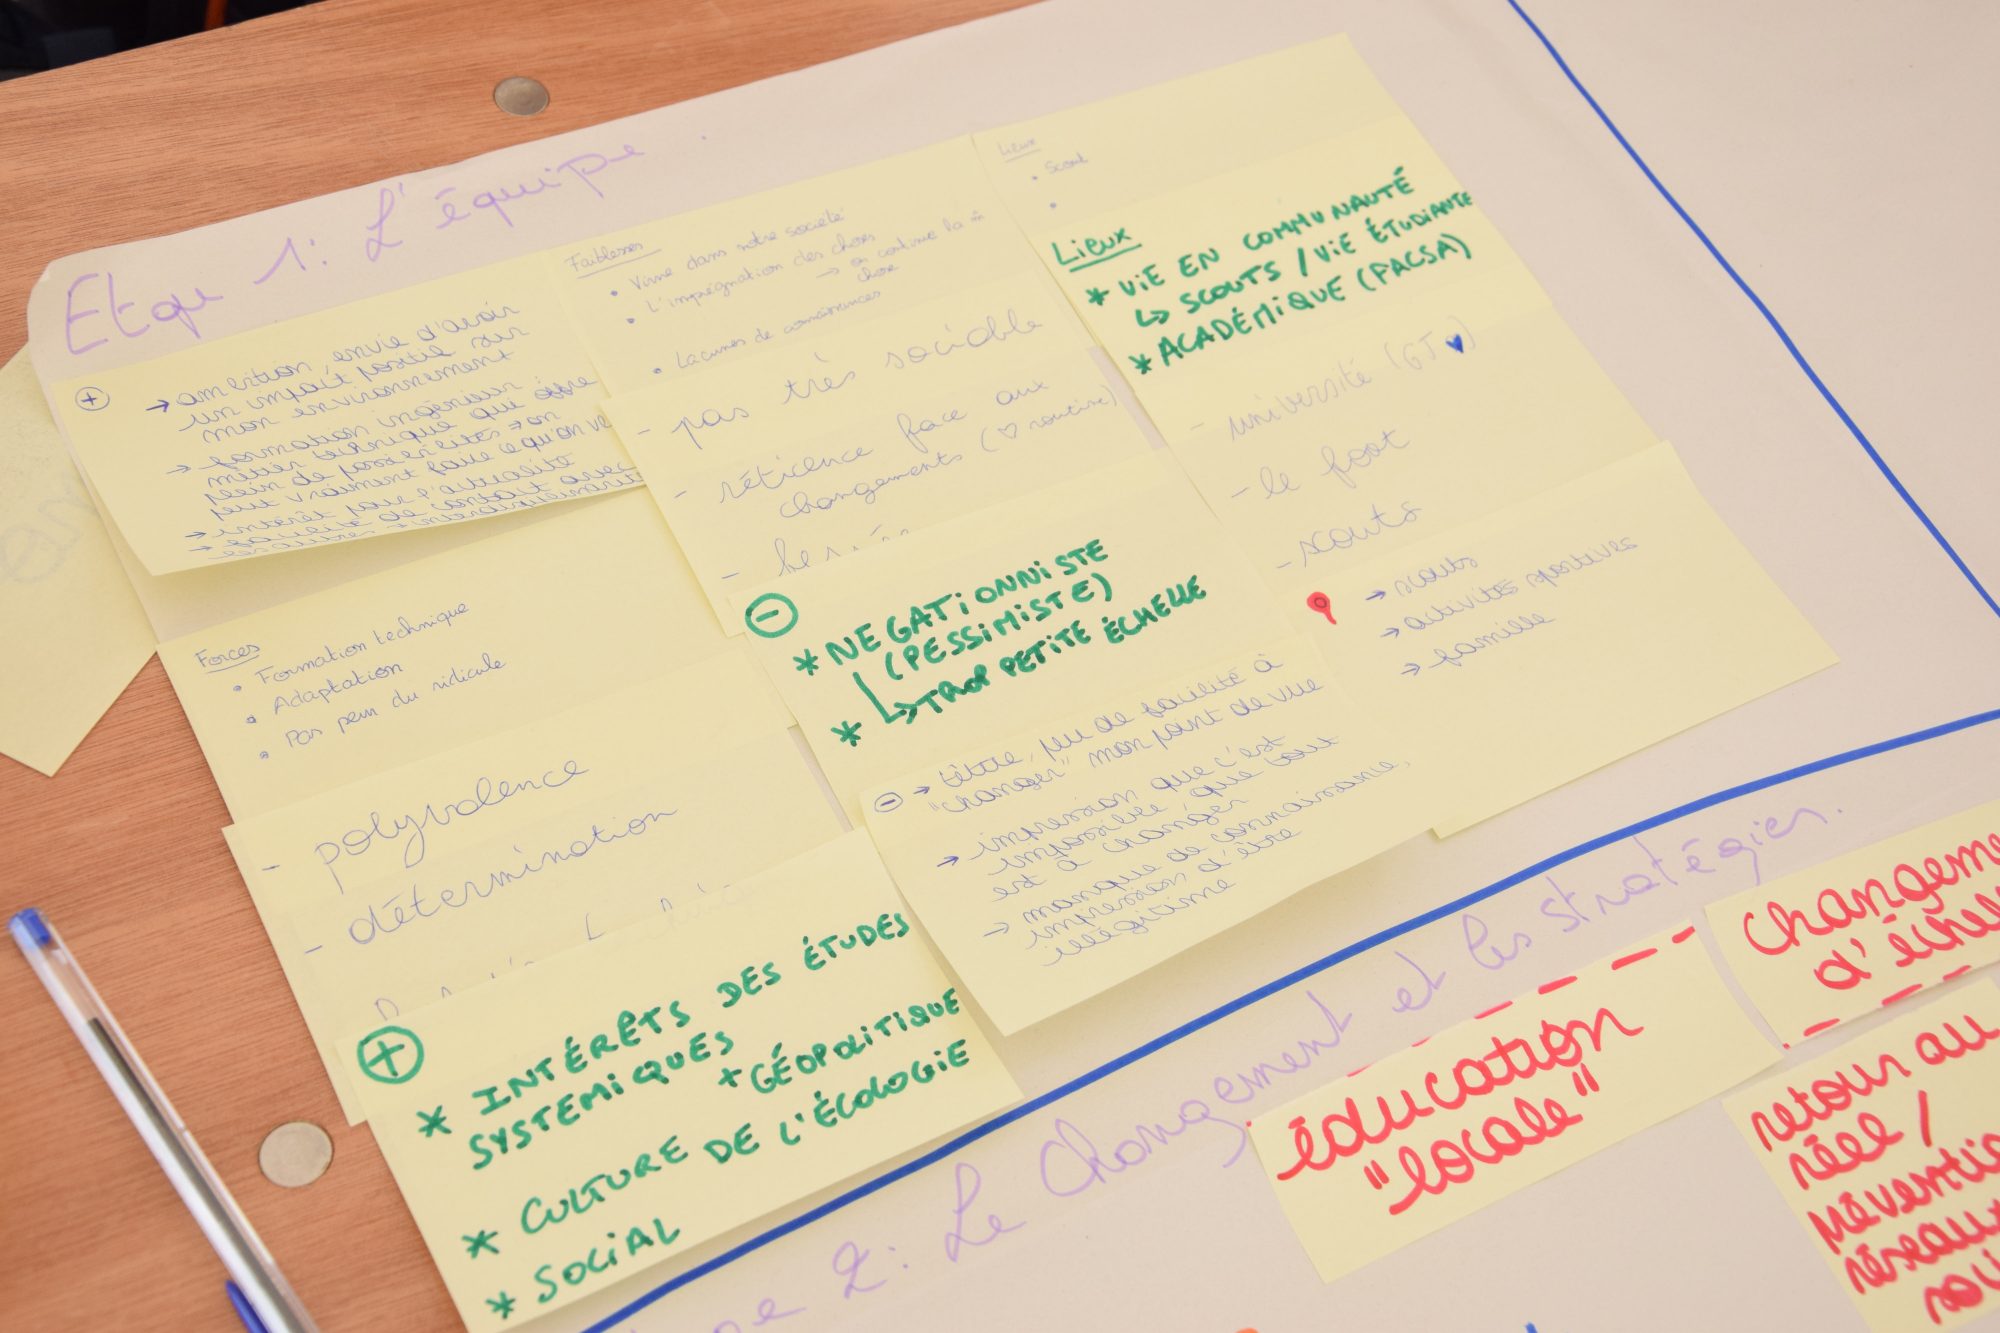 Etape 1: L'équipe
+
→ ambition, envie d'avoir
un impact positif sur
mon environnement
→ formation ingénieur
métier technique qui offre
plein de possibilités → on
peut vraiment faire ce qu'on ve
→ intérêt pour l'actualité
→ facilité de contact avec
les autres + interdisciplinarité
Forces
• Formation technique
• Adaptation
• Pas peur du ridicule
- polyvalence
- détermination
+
* INTÉRÊTS DES ÉTUDES
SYSTEMIQUES
+ GÉOPOLITIQUE
* CULTURE DE L'ÉCOLOGIE
* SOCIAL
Faiblesses
• Vivre dans notre société
• L'imprégnation des choses
→ on continue la m̂
chose
• Lacunes de connaissances
- pas très sociable
- réticence face aux
changements (♡ routine)
-
* NEGATIONNISTE
(PESSIMISTE)
↳ TROP PETITE ÉCHELLE
*
- → têtue, peu de facilité à
"changer" mon point de vue
→ impression que c'est
impossible, que tout
est à changer
→ manque de connaissance,
impression d'être
illégitime
Lieux
• Scout
•
Lieux
* VIE EN COMMUNAUTÉ
↳ SCOUTS / VIE ÉTUDIANTE
* ACADÉMIQUE (PACSA)
- université (GJ ♥)
- le foot
- scouts
→ scouts
→ activités sportives
→ famille
pe 2: Le Changement et les stratégies.
éducation
"locale"
changeme
d'éche
retour au
réel /
préventio
réseaux